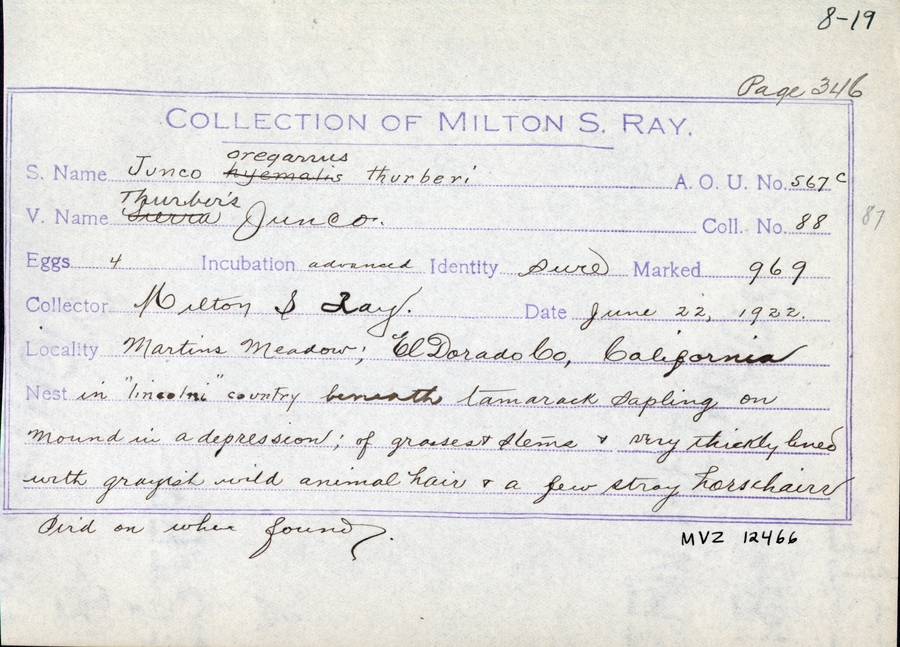 8-19
Page 346
COLLECTION OF MILTON S. RAY.
oreganus
S. Name Junco hyemalis thurberi A. O. U. No. 567c
Thurber's
V. Name Sierra Junco. Coll. No. 88 87
Eggs 4 Incubation advanced Identity sure Marked 969
Collector Milton S Ray. Date June 22, 1922.
Locality Martins Meadow; El Dorado Co, California
Nest in "lincolni" country beneath tamarack sapling on
mound in a depression; of grasses & stems & very thickly lined
with grayish wild animal hair & a few stray horsehairs
Bird on when found.
MVZ 12466